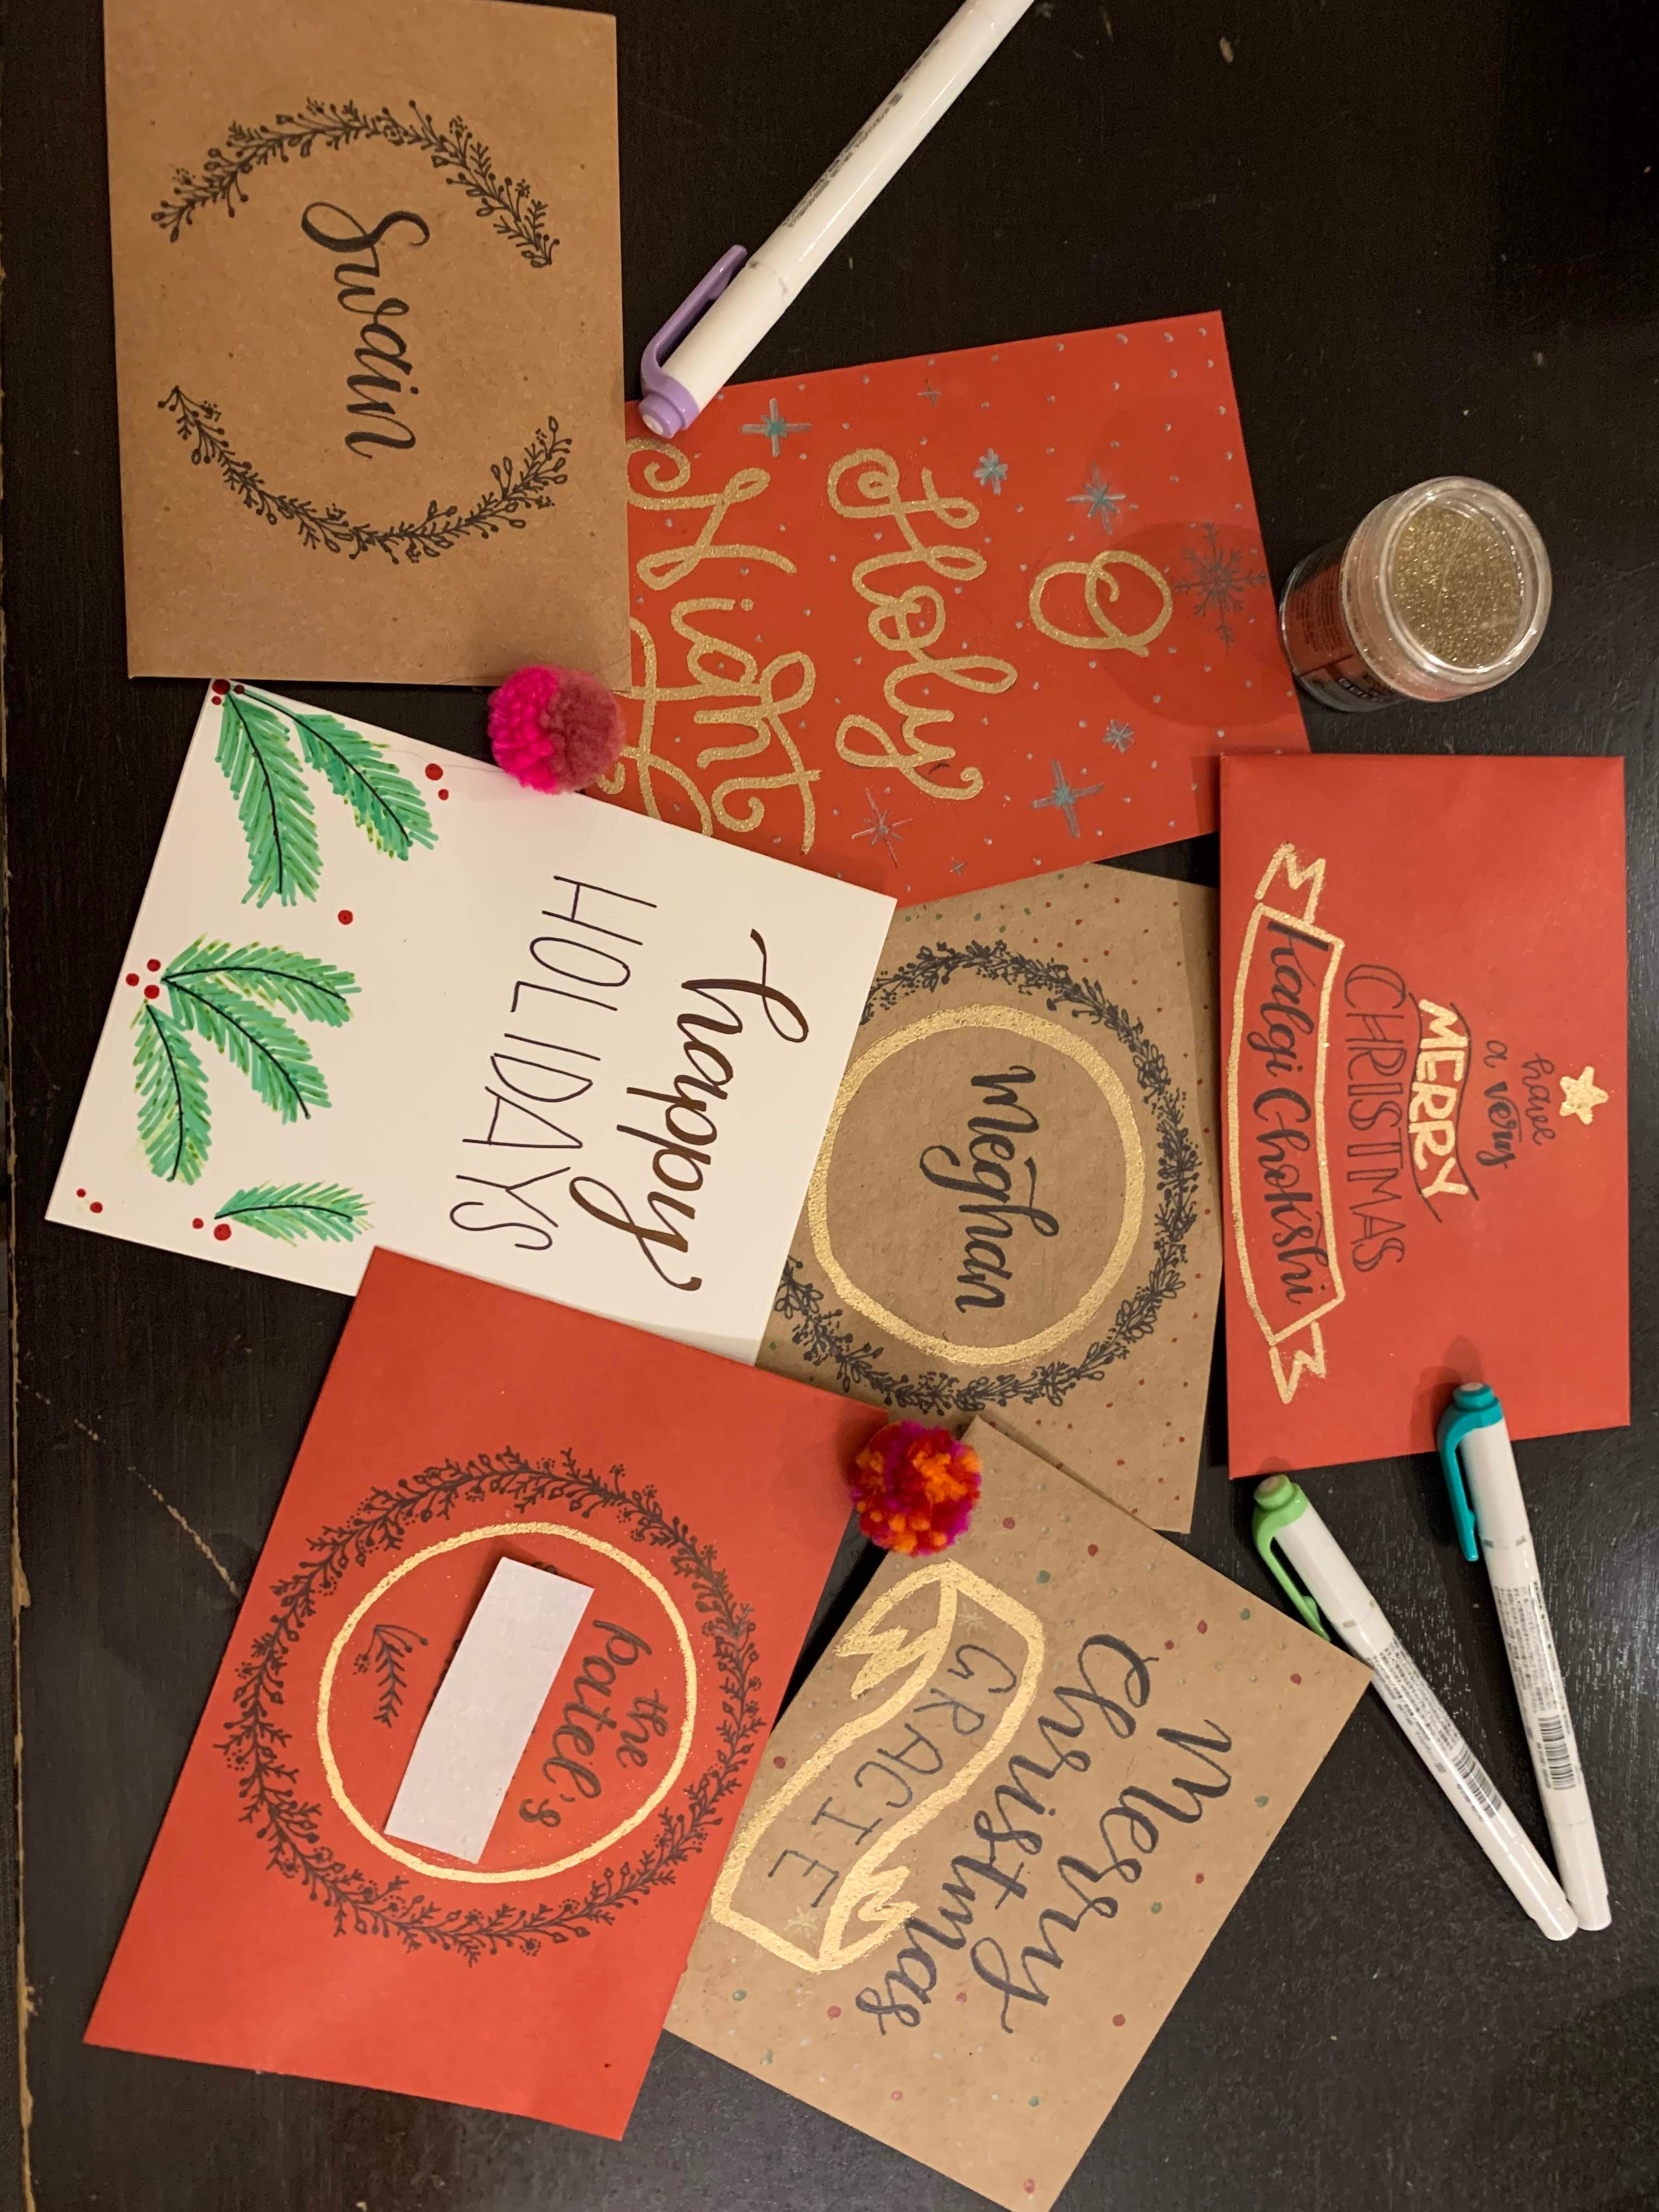 have
a very
MERRY
CHRISTMAS
Kalgi Chokshi
O
Holy
Night
Meghan
Merry
Christmas
GRACIE
happy
HOLIDAYS
the
patel's
Swain